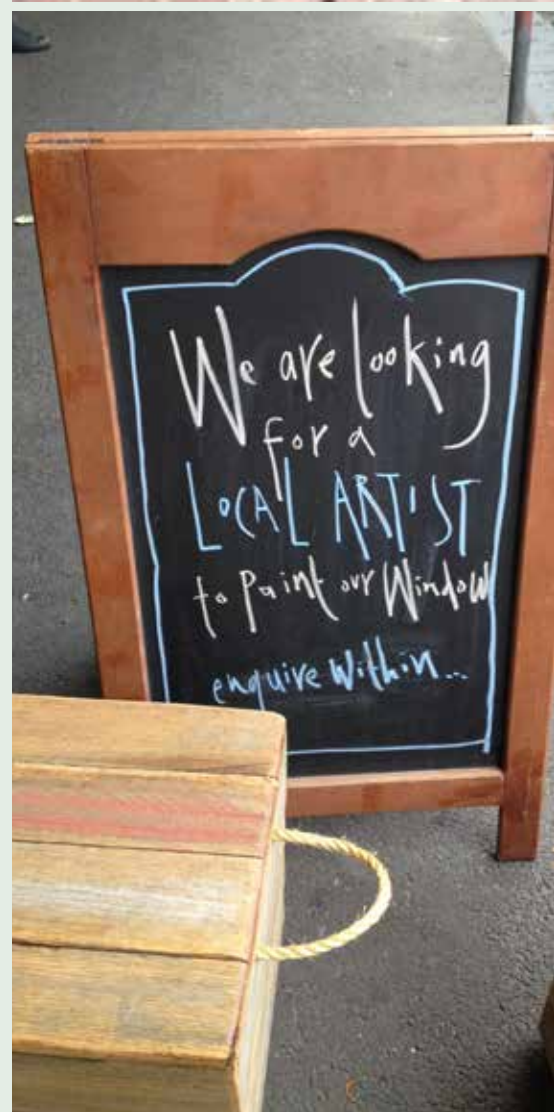 We are looking
for a
LOCAL ARTIST
to paint our Window
enquire within...